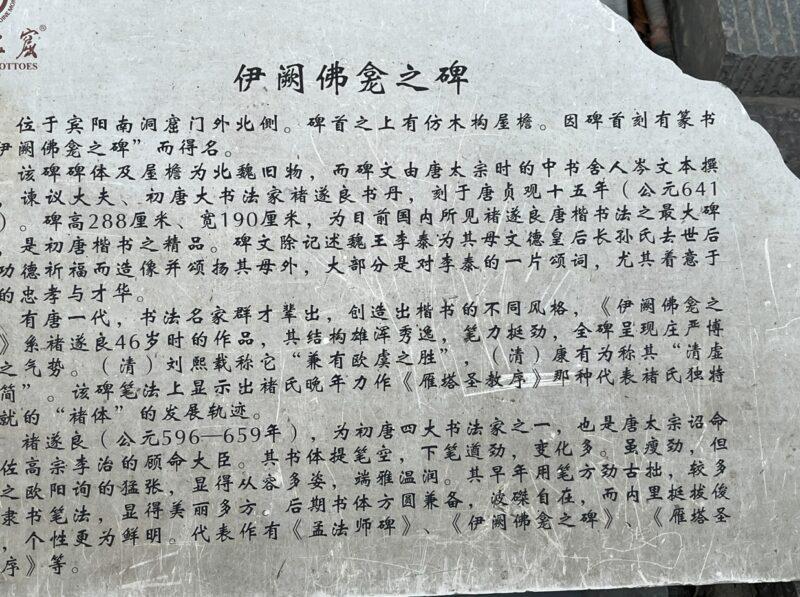 窟
OTTOES
伊阙佛龛之碑
位于宾阳南洞窟门外北侧。碑首之上有仿木构屋檐。因碑首刻有篆书
伊阙佛龛之碑”而得名。
该碑碑体及屋檐为北魏旧物，而碑文由唐太宗时的中书舍人岑文本撰
，谏议大夫、初唐大书法家褚遂良书丹，刻于唐贞观十五年（公元641
）。碑高288厘米、宽190厘米，为目前国内所见褚遂良唐楷书法之最大碑
，是初唐楷书之精品。碑文除记述魏王李泰为其母文德皇后长孙氏去世后
功德祈福而造像并颂扬其母外，大部分是对李泰的一片颂词，尤其着意于
的忠孝与才华。
有唐一代，书法名家群才辈出，创造出楷书的不同风格，《伊阙佛龛之
》系褚遂良46岁时的作品，其结构雄浑秀逸，笔力挺劲，全碑呈现庄严博
之气势。（清）刘熙载称它“兼有欧虞之胜”，（清）康有为称其“清虚
简”。该碑笔法上显示出褚氏晚年力作《雁塔圣教序》那种代表褚氏独特
就的“褚体”的发展轨迹。
褚遂良（公元596—659年），为初唐四大书法家之一，也是唐太宗诏命
佐高宗李治的顾命大臣。其书体提笔空，下笔遒劲，变化多。虽瘦劲，但
之欧阳询的猛张，显得从容多姿，端雅温润。其早年用笔方劲古拙，较多
隶书笔法，显得美丽多方。后期书体方圆兼备，波磔自在，而内里挺拔俊
，个性更为鲜明。代表作有《孟法师碑》、《伊阙佛龛之碑》、《雁塔圣
序》等。